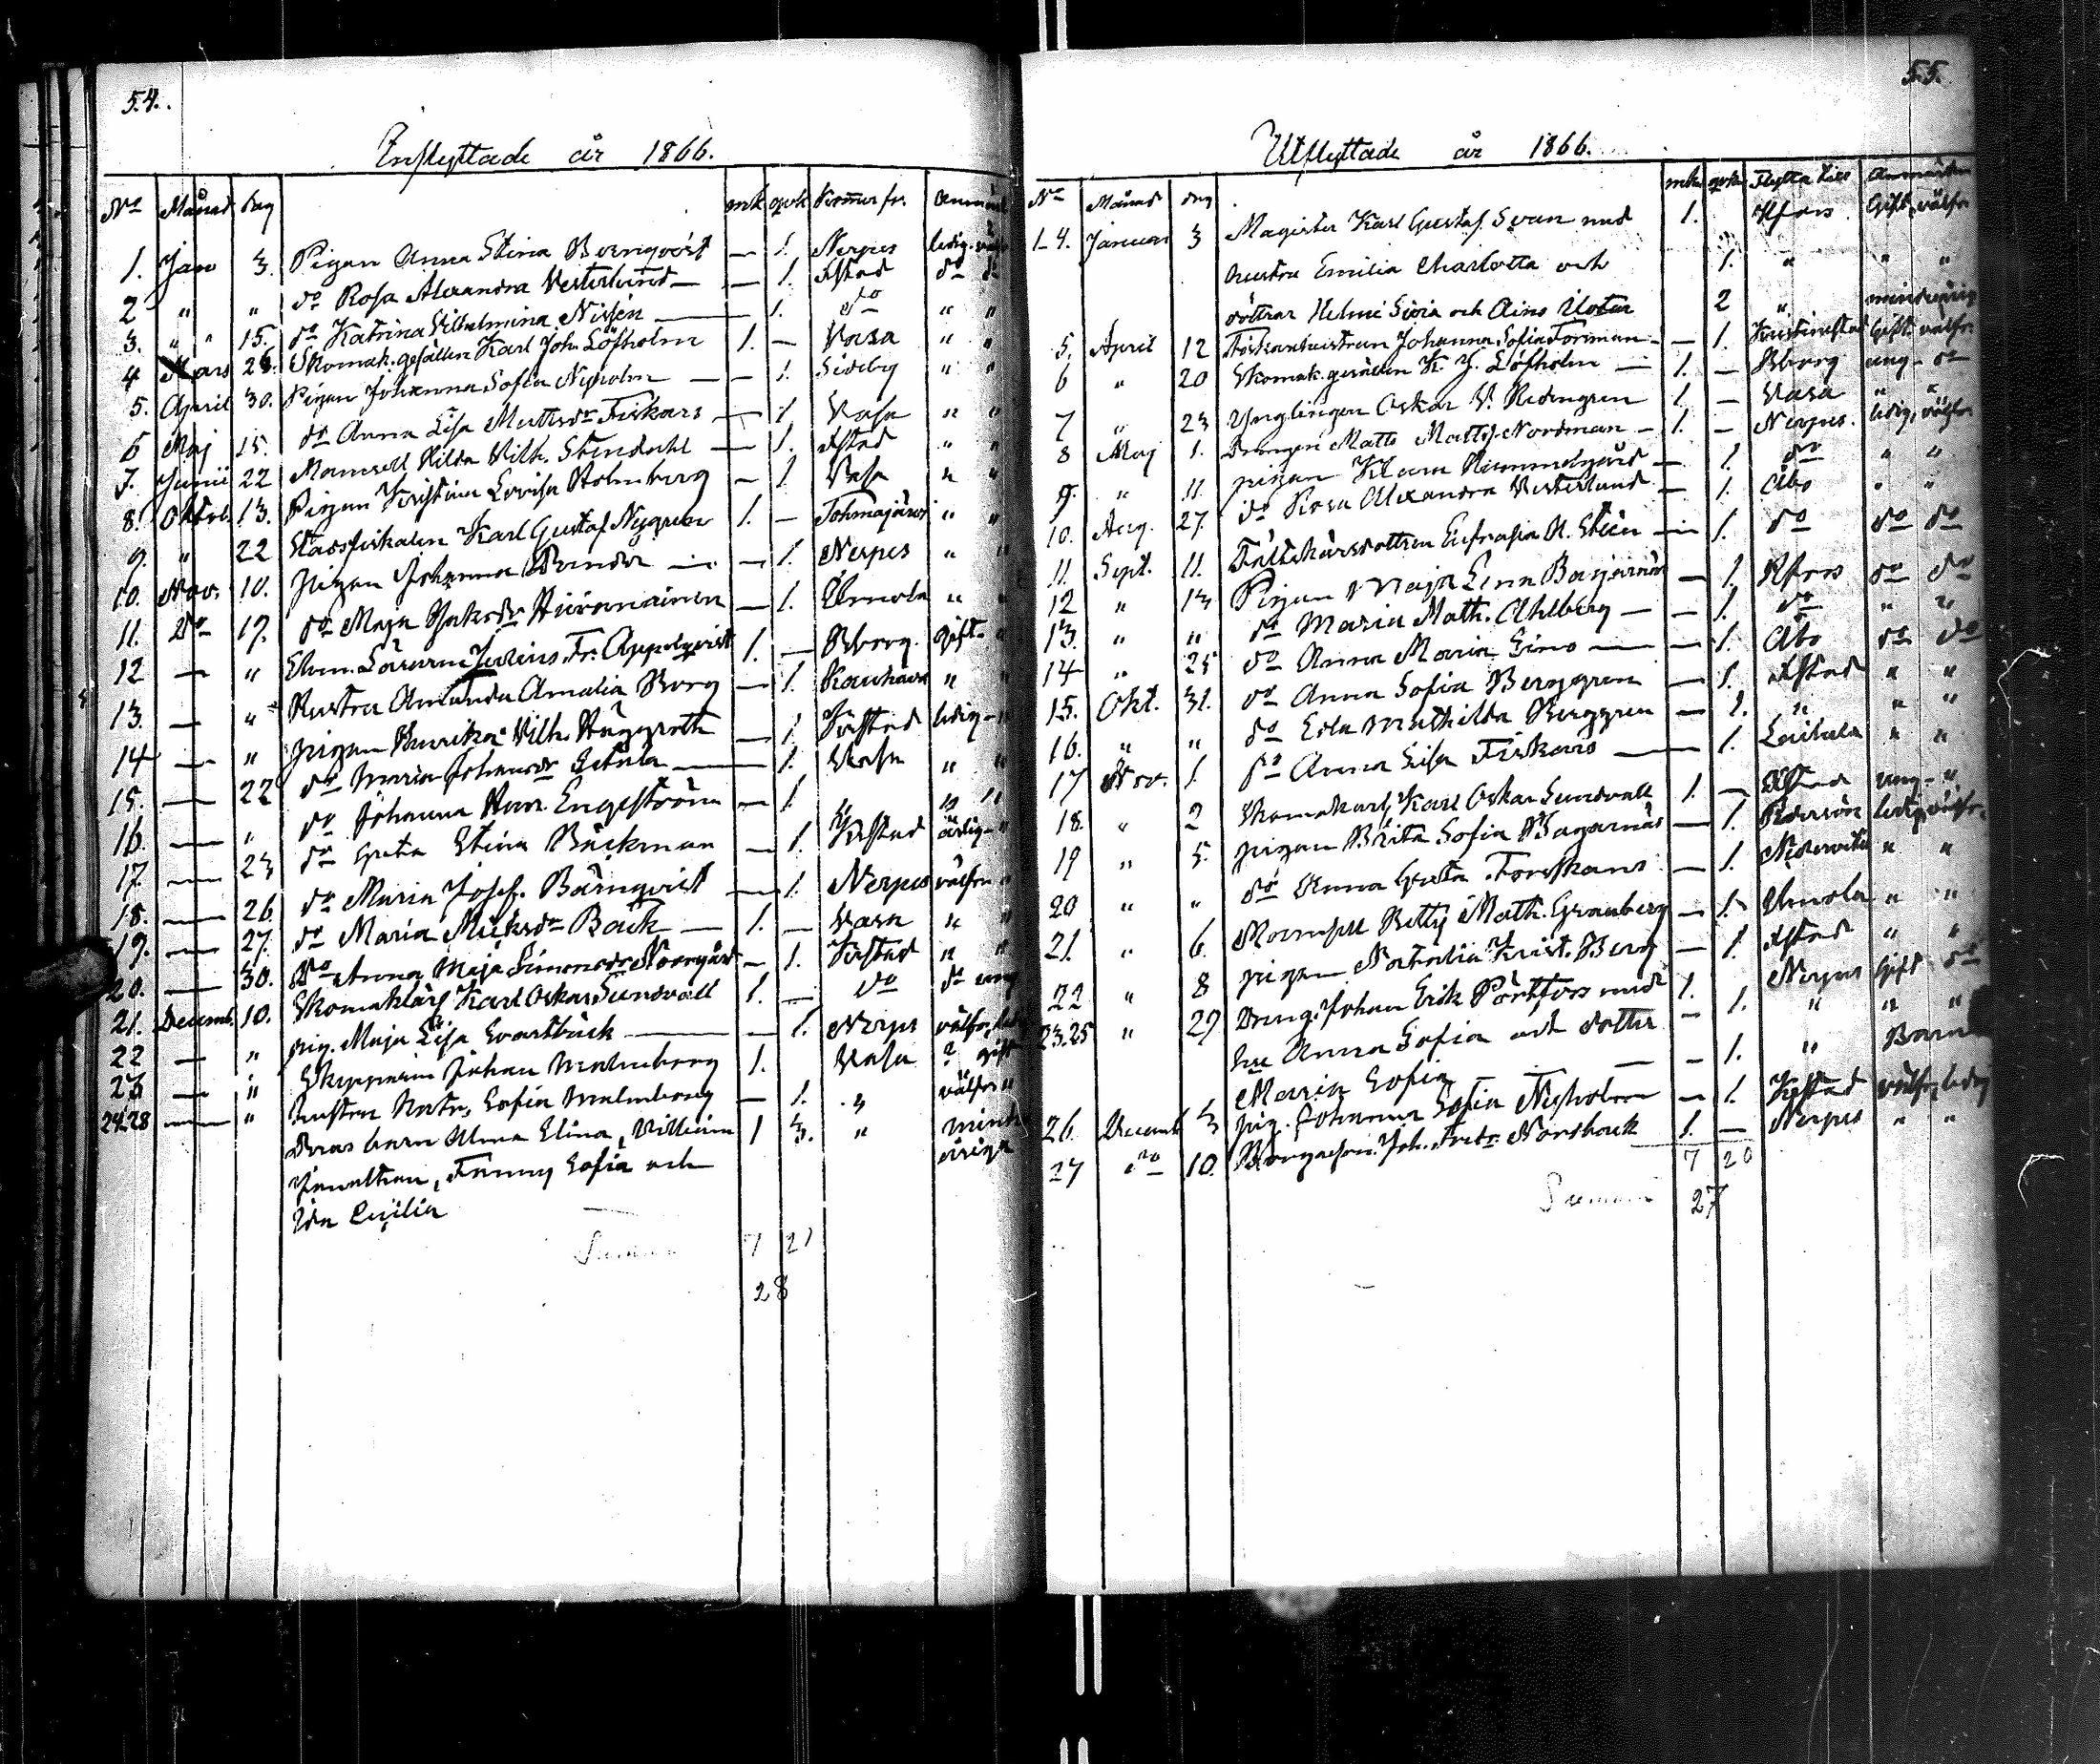 54.
Inflyttade år 1866.
No Månad dag mk qvk Kommer fr. Anmärk
1. Jan 3. Pigan Anna Stina Bernqvist — 1. Nerpes ledig. välfr
2 " " do Rosa Alexandra Vesterlund — — 1. Kstad do do
3. " " 15. do Katrina Vilhelmina Nissén — 1. do " "
4 Mars 28. Skomak. gesällen Karl Joh. Löfholm 1. — Vasa " "
5. April 30. Pigan Johanna Sofia Nyholm — — 1. Sideby " "
6 Maj 15. do Anna Lisa Mattsdr Fiskars — 1 Vasa " "
7. Junii 22 Mamsell Hilda Vilh. Stendahl — 1. Kstad " "
8. Oktob. 13. Pigan Kristina Lovisa Holmberg — 1 Vasa " "
9. " 22 Länsfiskalen Karl Gustaf Nygren 1. — Tohmajärvi " "
10. Nov. 10. pigan Johanna — — 1. Nerpes " "
11. Do 17. do Maja — 1. Ulmola " "
12 — " Elem. Läraren Julius Fr. Appelqvist 1. — Bborg. gift. "
13. — " Hustru Amanda Amalia Borg — 1. Kauhava " "
14 — " pigan Henrika Vilh. Häggroth — 1 Kstad ledig — "
15. — 22 do Maria Johansdr — 1. Vasa " "
16. — " do Johanna Engström — 1. " " "
17. — 23 do Greta Stina Bäckman — 1. Kstad ledig — "
18. — 26. do Maria Josef. Bärnqvist — 1. Nerpes välfr "
19. — 27. do Maria Mickelsdr Back — 1. — Vasa " "
20. — 30. Do Anna Maja Simonsdr Norrgård — 1. Kstad " "
21. Decemb. 10. Skomaklärl. Karl Oskar Sundvall 1. — do do ung
22 — " pig. Maja Lisa Svartbäck — — 1. Nerpes välfr, led
23 — " Skepparen Johan Malmberg 1. Vasa ? gift
24-28 — " hustrun Sofia Malmberg — 1. " välfr "
Deras barn Alma Elina, William 1 3. " minder
Jonathan, Fanny Sofia och åriga
Ida Cecilia
Summa 7 21
28
55.
Utflyttade år 1866.
No Månad dag mk qvk Flytta till Anmärkn
1-4. Januari 3 Magister Karl Gustaf Svan med 1. Hfors Gift, välfr
hustru Emilia Charlotta och 1. " " "
döttrar Helmi Siviä och Aino 2 " minderårig
5. April 12 Johanna Sofia Forsman — — 1. Kristinestad Gift. välfr.
6 " 20 Skomak. gesällen K. J. Löfholm — 1. — Bborg ung — do
7 " 23 Ynglingen Oskar V. Rudngren 1 — Vasa " "
8 Maj 1. Drängen Matts Mattss. Nordman — 1. — Nerpes. ledig, välfr.
9. " 11. pigan Klara — 1. do " "
10. Aug. 27. do Rosa Alexandra Vesterlund — 1. Åbo " "
11. Sept. 11. Fältskärsdottren Eufrosia A. Stén — 1. do do do
12 " 13 Pigan Maja Lena — 1. Hfors do do
13. " " do Maria Math. Ahlberg — — 1. do " "
14 " 25 do Anna Maria Simo — — 1. Åbo do do
15. Okt. 31. do Anna Sofia Berggren — 1. Kstad " "
16. " " do Eda Mathilda Berggren — 1. " " "
17 Nov. 1 do Anna Lisa Fiskars — 1. Laihela " "
18. " 2 Skomaklärl. Karl Oskar Sundvall 1. — Kstad ung — "
19 " 5. pigan Brita Sofia — 1. ledig, välfr.
20 " " do Anna Greta — 1. Nedervetil " "
21. " 6. Mamsell Betty Math. Granberg — 1. Ulmola " "
22 " 8 pigan Natalia Krist. Berg — 1. Kstad " "
23.25 " 29 Dräng. Johan Erik Pörtfors med 1. Nerpes Gift do
hu Anna Sofia och dotter — 1. " " "
Maria Sofia — — 1. " Barn
26. Decemb 3 pig. Johanna Sofia Nyholm — 1. Kstad välfr, ledig
27 do 10. Joh. Norrback 1. — Nerpes " "
7 20
Summa 27